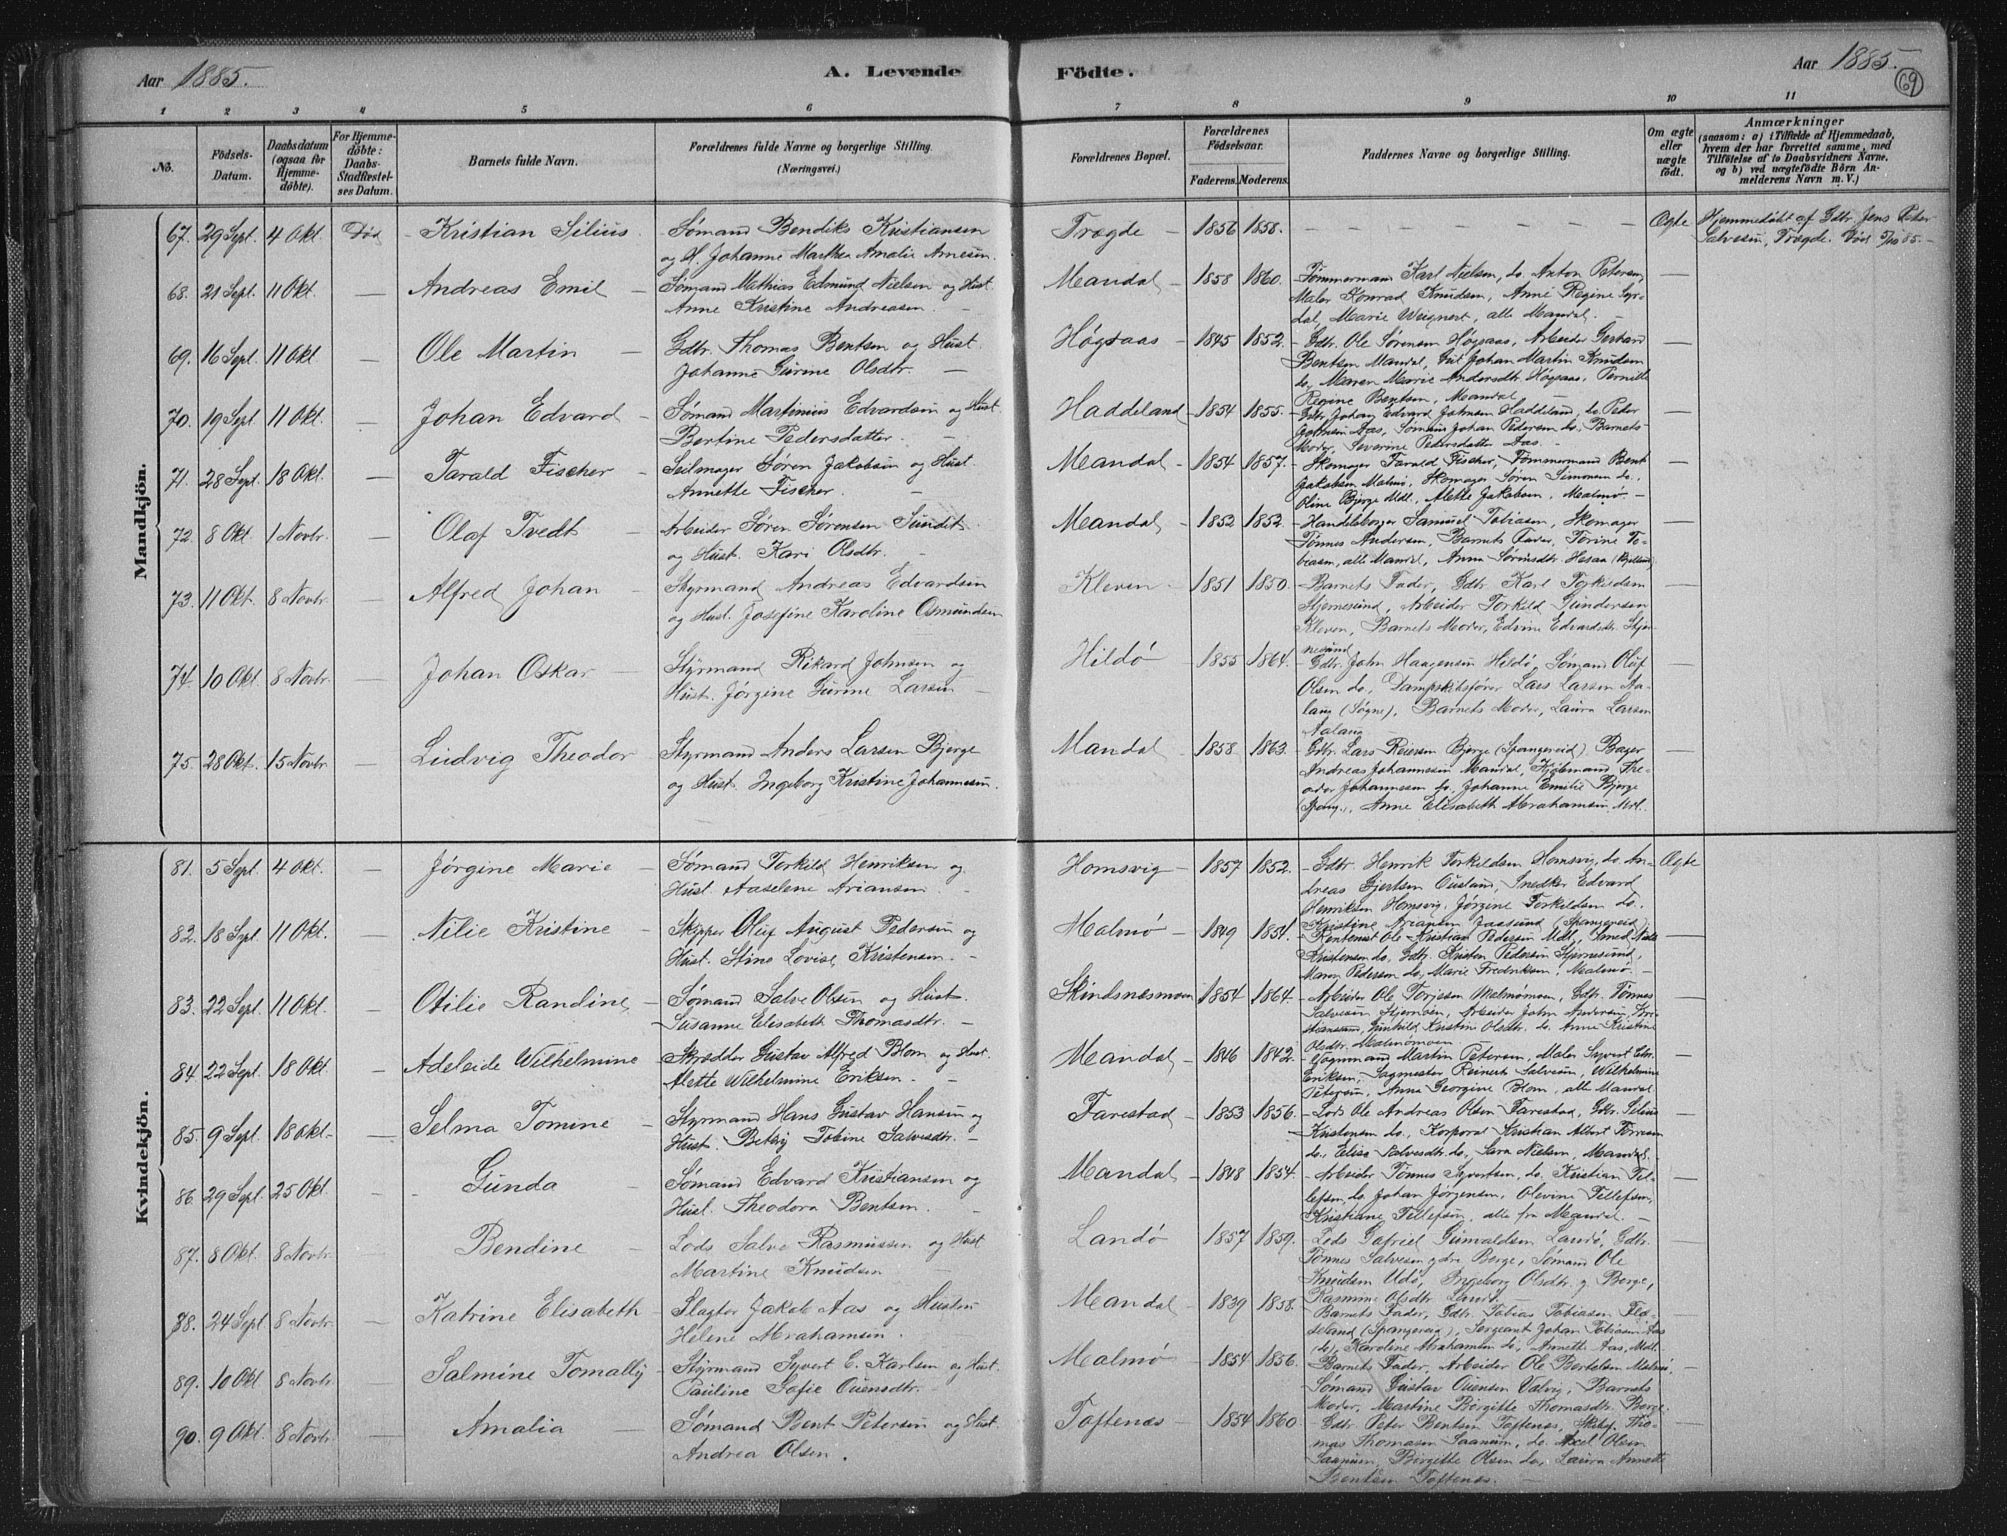 Aar 1885.
A. Levende Födte.
Aar 1885.
69
1 2 3 4 5 6 7 8 9 10 11
No.
Födsels-Datum.
Daabsdatum (ogsaa för Hjemme-döbte).
For Hjemme-döbte: Daabs-Stadfæstel-ses Datum.
Barnets fulde Navn.
Forældrenes fulde Navne og borgerlige Stilling. (Næringsvei.)
Forældrenes Bopæl.
Forældrenes Födselsaar.
Faderens. Moderens.
Faddernes Navne og borgerlige Stilling.
Om ægte eller uægte födt.
Anmærkninger
(saasom: a) i Tilfælde af Hjemmedaab, hvem der har forrettet samme, med Tilföielse af to Daabsvidners Navne, og b) ved uægtefödte Börn An-melderens Navn m. V.)
Mandkjön.
67. 29 Sept. 4 Okt. Död Kristian Silius. Sømand Bendiks Kristiansen
og H. Johanne Marthea Amalie Arnesen. Trægde 1856 1858. Ægte Hjemmedøbt af Gdbr. Jens Peter
Salvesen, Trægde. Død 5/10 85.
68. 21 Sept. 11 Okt. — Andreas Emil — Sømand Mathias Edmund Nielsen og Hust.
Anne Kristine Andreasen. — Mandal 1858 1860. Tømmermand Karl Nielsen, do. Anton Petersen,
Maler Konrad Knudsen, Anne Regine Syr-
dal, Marie Weignert, alle Mandal. —
69. 16 Sept. 11 Okt. — Ole Martin — Gdbr. Thomas Bentsen og Hust.
Johanne Gurine Olsdtr. — Høgsaas 1845 1852. Gdbr. Ole Sørensen Høgsaas, Arbeider Gerhard
Bentsen Mandal, Johan Martin Knudsen
do, Maren Marie Andersdtr. Høgsaas, Pernille
Regine Bentsen, Mandal —
70. 19 Sept. 11 Okt. — Johan Edvard — Sømand Martinius Edvardsen og Hust.
Bertine Pedersdatter. — Haddeland 1854 1855. Gdbr. Johan Edvard Johnsen Haddeland, do. Peter
Johnsen Aas, Sømand Johan Pedersen do. Barnets
Moder, Severine Pedersdatter Aas. —
71. 28 Sept. 18 Okt. — Tarald Fischer Seilmager Søren Jakobsen og Hust.
Annette Fischer. — Mandal 1854 1857. Skomager Tarald Fischer, Tømmermand Bent
Jakobsen Malmø, Skomager Søren Simonsen do.,
Oline Bjerge Mdl., Alette Jakobsen, Malmø —
72. 8 Okt. 1 Novbr. — Olaf Tvedt — Arbeider Søren Sørensen Sundet
og Hust. Kari Olsdtr. — Mandal 1852 1852. Handelsborger Samuel Tobiasen, Skomager
Tønnes Andersen, Barnets Fader, Torine To-
biasen, alle Mandal, Anna Sørensdtr. Hesaa
73. 11 Okt. 8 Novbr. — Alfred Johan — Styrmand Andreas Edvardsen
og Hust. Josefine Karoline Osmundsen Kleven 1851 1850. Barnets Fader, Gdbr. Karl Torkildsen
Stjernesund, Arbeider Torkild Gundersen
Kleven, Barnets Moder, Edvine Edvardsdtr. Stjer-
nesund
74. 10 Okt. 8 Novbr. — Johan Oskar — Styrmand Rikard Johnsen og
Hust. Jørgine Gurine Larsen — Hildø 1855 1864. Gdbr. John Haagensen Hildø, Sømand Oluf
Olsen do, Dampskibsfører Lars Larsen Aa-
land (Søgne), Barnets Moder, Laura Larsen
Aaland
75. 28 Okt. 15 Novbr. — Ludvig Theodor Styrmand Anders Larsen Bjerge
og Hust. Ingeborg Kristine Johannesen. Mandal 1858 1863. Gdbr. Lars Reiersen Bjerge (Spangereid) Bager
Andreas Johannessen Mandal, Kjøbmand The-
odor Johannessen do. Johanne Emilie Bjerge
Spang., Anne Elisabeth Abrahamsen Mdl.
Kvindekjön.
81. 5 Sept. 4 Okt. — Jørgine Marie — Sømand Torkild Henriksen og
Hust. Aaselene Ariansen. — Homsvig 1857 1852. Gdbr. Henrik Torkildsen Homsvig, do. An-
dreas Gjertsen Ousland, Snedker Edvard
Henriksen Homsvig, Jørgine Torkildsen do.
Kristine Ariansen Jaasund (Spangereid) Ægte
82. 18 Sept. 11 Okt. — Nilie Kristine — Skipper Oluf August Pedersen og
Hust. Stine Lovise Kristensen. — Malmø 1849 1854. Rentenist Ole Kristian Pedersen Mdl., Smed Nils
Kristensen do, Gdbr. Kristen Pedersen Stjernesund,
Maren Pedersen do, Marie Fredriksen, Malmø. —
83. 22 Sept. 11 Okt. — Otilie Randine — Sømand Salve Olsen og Hust.
Susanne Elisabeth Thomasdtr. — Skindsnæsmoen 1854 1864. Arbeider Ole Torjesen Malmømoen, Gdbr. Tønnes
Salvesen Stjernøen, Arbeider John Andersen, Kri-
stiansand, Gunhild Kristin Olsdtr. do. Anne Kristine
Olsdtr. Malmømoen
84. 22 Sept. 18 Okt. — Adeleide Wilhelmine Skrædder Gustav Alfred Blom og Hust.
Alette Wilhelmine Eriksen. — Mandal 1846 1842. Vognmand Martin Petersen, Maler Syvert Edv.
Eriksen, Sagmester Reinert Salvesen, Wilhelmine
Petersen, Anna Georgine Blom, alle Mandal
85. 9 Sept. 18 Okt. — Selma Tomine — Styrmand Hans Gustav Hansen og
Hust. Betzy Tobine Salvesdtr. — Farestad 1853 1856. Lods Ole Andreas Olsen Farestad, Gdbr. Silius
Kristensen do., Korporal Kristian Albert Torresen
do., Elisa Salvesdtr. do, Sara Nielsen, Mandal.
86. 29 Sept. 25 Okt. — Gunda — Sømand Edvard Kristiansen og
Hust. Theodora Bentsen. — Mandal 1848 1854. Arbeider Tønnes Syvertsen, do. Kristian Til-
lefsen, do. Johan Jørgensen, Olevine Tillefsen,
Kristiane Tillefsen, alle fra Mandal. —
87. 8 Okt. 8 Novbr. — Bendine — Lods Salve Rasmussen og Hust
Martine Knudsen — Landø 1857 1859. Lods Gabriel Gunvaldsen Landø, Gdbr.
Tønnes Salvesen ydre Berge, Sømand Ole
Knudsen Udø, Ingeborg Olsdtr. y. Berge,
Rasmine Olsdtr. Landø. —
88. 24 Sept 8 Novbr. — Katrine Elisabeth Slagter Jakob Aas og Hustru
Helene Abrahamsen. — Mandal 1839 1858. Barnets Fader, Gdbr. Tobias Tobiasen Fid-
deland (Spangereid), Sergeant Johan Tobiasen Aas
do, Karoline Abrahamsen do, Annette Aas, Mdl.
89. 10 Okt. 8 Novbr. — Salmine Tomally Styrmand Syvert E. Karlsen og Hust.
Pauline Sofie Ouensdtr. — Malmø 1854 1856. Barnets Fader, Arbeider Ole Bertelsen Malmø,
Sømand Gustav Ouensen Valvig, Barnets
Moder, Martine Birgitte Thomasdtr. Berge.
90. 9 Okt. 8 Novbr. — Amalia — Sømand Bent Petersen og Hust.
Andrea Olsen. Toftenæs 1854 1860 Gdbr. Peter Bentsen Toftenæs, Skibsf. Tho-
mas Thomasen Saanum, do. Axel Olsen
Saanum, Birgitte Olsen do, Laura Annette
Bentsen Toftenæs. —